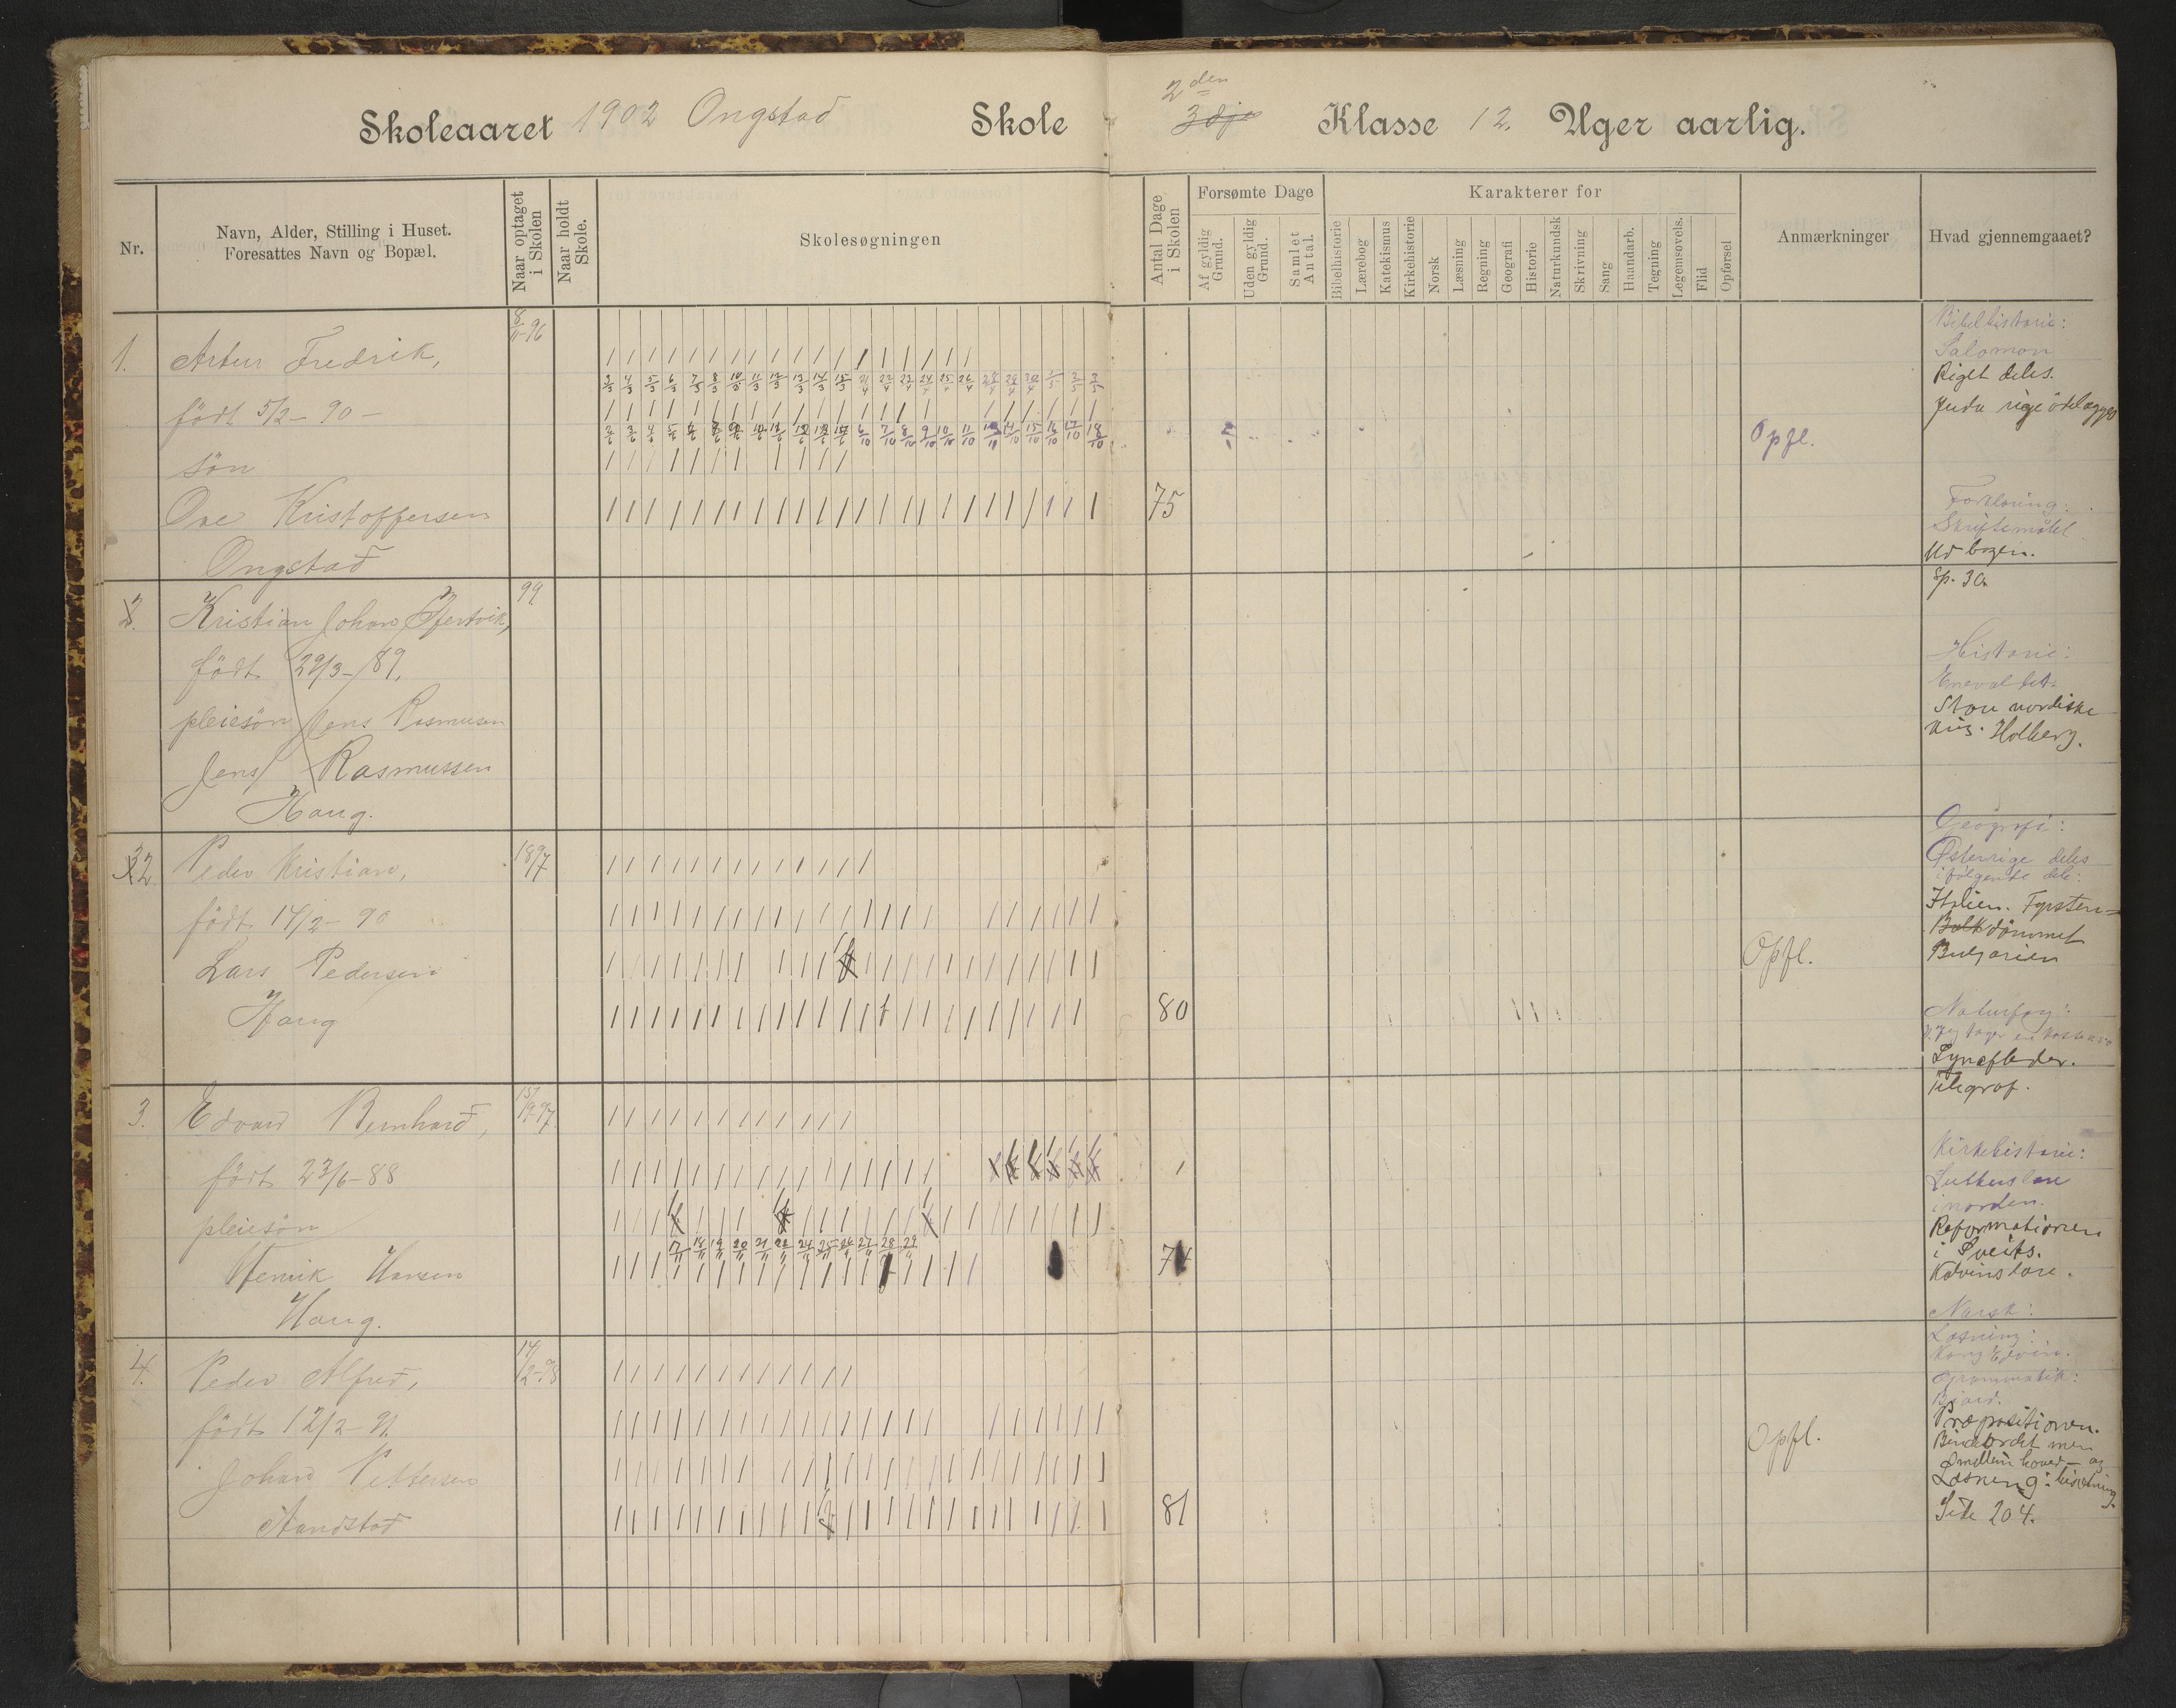 2den
Skoleaaret 1902 Ongstad Skole 3dje Klasse 12. Uger aarlig.
Nr.
Navn, Alder, Stilling i Huset.
Foresattes Navn og Bopæl.
Naar optaget
i Skolen
Naar holdt
Skole.
Skolesøgningen
Antal Dage
i Skolen
Forsømte Dage
Af gyldig
Grund.
Uden gyldig
Grund.
Samlet
Antal.
Karakterer for
Bibelhistorie
Lærebog
Katekismus
Kirkehistorie
Norsk
Læsning
Regning
Geografi
Historie
Naturkundsk
Skrivning
Sang
Haandarb.
Tegning
Legemsøvels.
Flid
Opførsel
Anmærkninger
Hvad gjennemgaaet?
1. Artur Fredrik,
8/11-96
født 5/2-90-
søn
Ove Kristoffersen
Ongstad
75
Opfl.
Kristian Johan
99
født 29/3-89.
pleiesøn Jens Rasmusen
Jens Rasmussen
Haug.
2 Peder Kristian,
1897
født 14/2-90
Lars Pedersen
Haug
80
Opfl.
3. Edvard Bernhard,
født 23/6-88
pleiesøn
Henrik Hansen
Haug.
74
4. Peder Alfred,
født 12/2-91
Johan Pettersen
Aandstad
81
Opfl.
Bibelhistorie:
Salomon
Riget deles.
Juda rige ødelægges
Forklaring:
Skriftemålet
Ud bogen.
Sp. 30
Historie:
Enevaldet.
Store nordiske
krig. Holberg.
Geografi:
Østerrige deles
i følgende dele:
Italien. Fyrsten=
dømmet
Bulgarien
Naturfag:
Lynafleder.
Telegraf.
Kirkehistorie:
Luthers lære
i norden.
Reformationen
i Sveits.
Kalvins lære.
Norsk:
Læsning:
Grammatik:
Præpositionen.
Bindeordet men
Læsning:
Side 204.